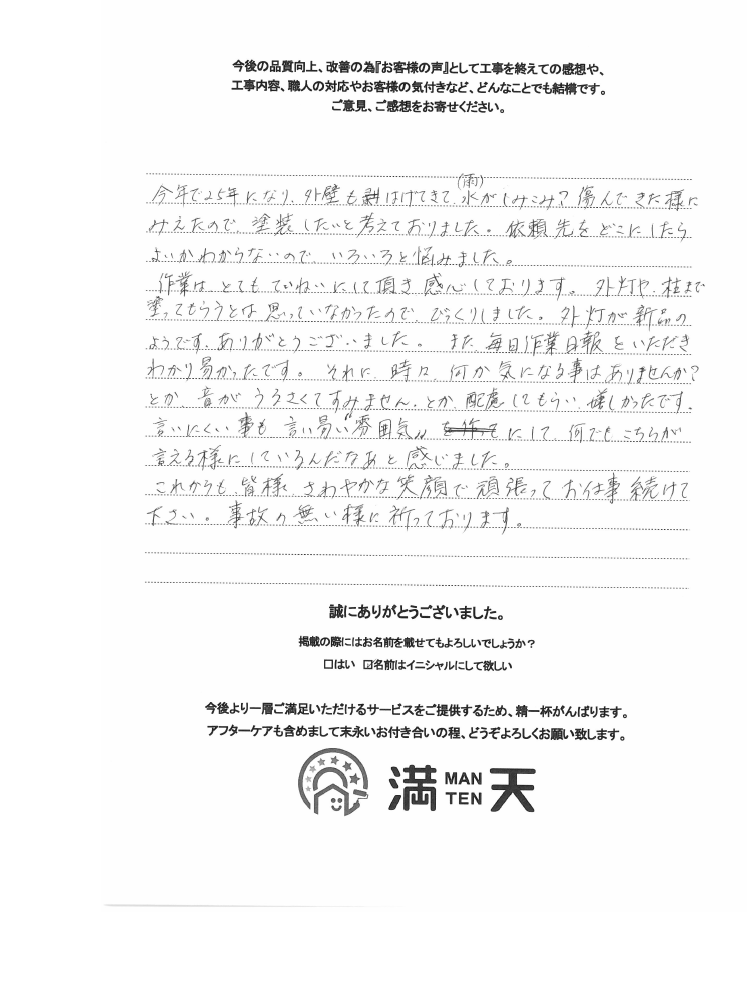 今後の品質向上、改善の為『お客様の声』として工事を終えての感想や、
工事内容、職人の対応やお客様の気付きなど、どんなことでも結構です。
ご意見、ご感想をお寄せください。
(雨)
今年で25年になり、外壁も剥はげてきて、水がしみこみ?傷んできた様に
みえたので、塗装したいと考えておりました。依頼先をどこにしたら
よいかわからないので、いろいろと悩みました。
作業は、とてもていねいにして頂き感心しております。外灯や、柱まで
塗ってもらうとは思っていなかったので、びっくりしました。外灯が新品の
ようです、ありがとうございました。また、毎日作業日報をいただき
わかり易かったです。それに、時々、何か気になる事はありませんか?
とか、音がうるさくてすみません、とか、配慮してもらい、嬉しかったです。
言いにくい事も言い易い〝雰囲気〟を作ってにして、何でもこちらが
言える様にしているんだなあと感じました。
これからも、皆様、さわやかな笑顔で頑張ってお仕事続けて
下さい。事故の無い様に祈っております。
誠にありがとうございました。
掲載の際にはお名前を載せてもよろしいでしょうか?
□はい ☑名前はイニシャルにして欲しい
今後より一層ご満足いただけるサービスをご提供するため、精一杯がんばります。
アフターケアも含めまして末永いお付き合いの程、どうぞよろしくお願い致します。
満 MAN TEN 天